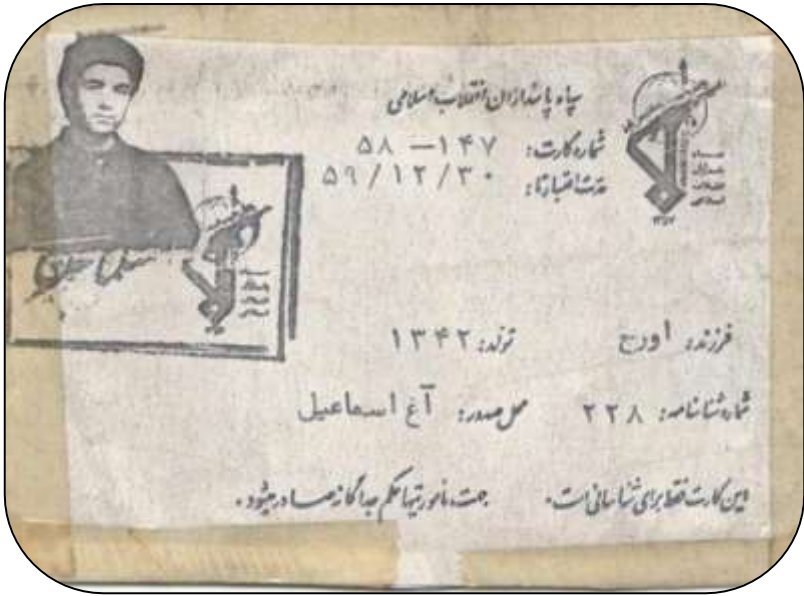 سپاه پاسداران انقلاب اسلامی
شماره کارت: ۱۴۷ — ۵۸
مدت اعتبار تا: ۵۹/۱۲/۳۰
فرزند: اورج تولد: ۱۳۴۲
شماره شناسنامه: ۲۲۸ محل صدور: آغ اسماعیل
این کارت فقط برای شناسائی است. جهت مأموریتها حکم جداگانه صادر میشود.